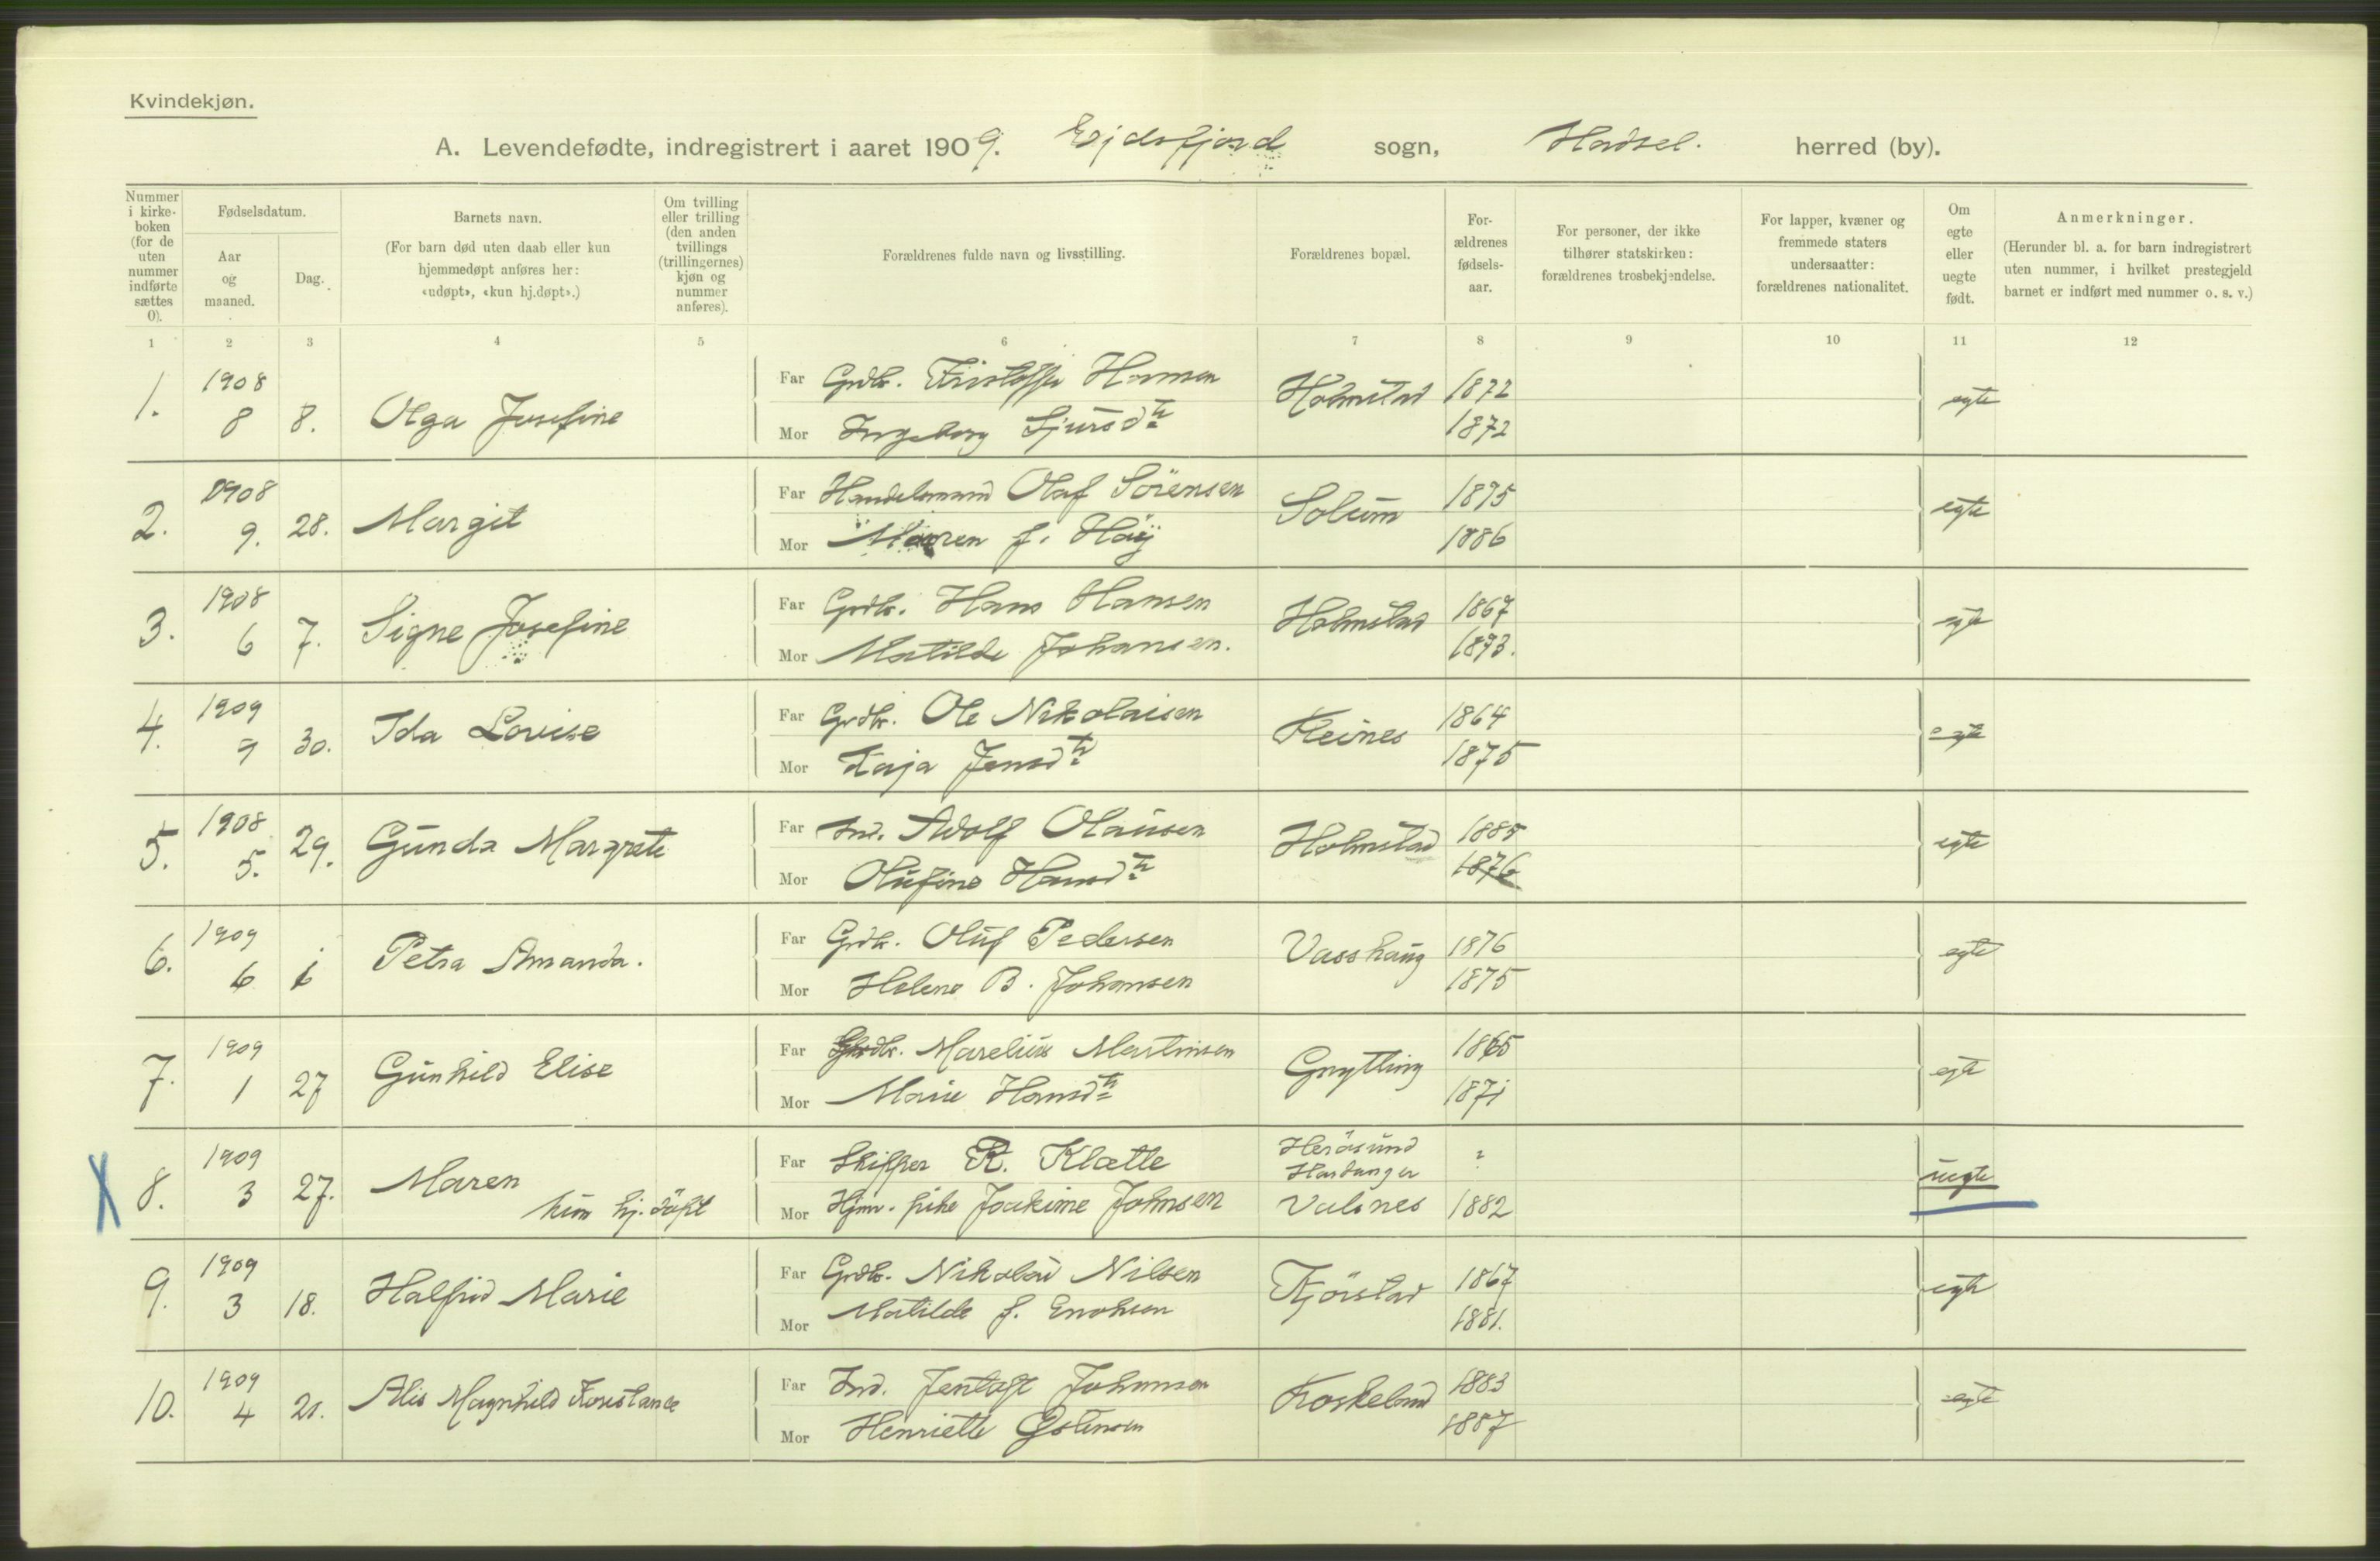 Kvindekjøn.
A. Levendefødte, indregistrert i aaret 1909. Ejdsfjord sogn, Hadsel. herred (by).
Nummer i kirkeboken (for de uten nummer indførte sættes 0).
Fødselsdatum.
Aar og maaned.
Dag.
Barnets navn.
(For barn død uten daab eller kun hjemmedøpt anføres her: «udøpt», «kun hj.døpt».)
Om tvilling eller trilling (den anden tvillings (trillingernes) kjøn og nummer anføres).
Forældrenes fulde navn og livsstilling.
Forældrenes bopæl.
Forældrenes fødselsaar.
For personer, der ikke tilhører statskirken: forældrenes trosbekjendelse.
For lapper, kvæner og fremmede staters undersaatter: forældrenes nationalitet.
Om egte eller uegte født.
Anmerkninger.
(Herunder bl. a. for barn indregistrert uten nummer, i hvilket prestegjeld barnet er indført med nummer o. s. v.)
1 2 3 4 5 6 7 8 9 10 11 12
1. 1908 8 8. Olga Josefine
Far Grdbr. Kristoffer Hansen Holmstad 1872 egte
Mor Ingeborg Sjursdtr 1872
2. 1908 9. 28. Margit
Far Handelsmand Olaf Sörensen Solum 1875 egte
Mor Maren f. Höy 1886
3. 1908 6 7. Signe Josefine
Far Grdbr. Hans Hansen Holmstad 1867 egte
Mor Matilde Johansen. 1873.
4. 1909 30. Ida Lovise
Far Grdbr. Ole Nikolaisen Reines 1864 egte
Mor Kaja Jensdtr 1875
5. 1908 5. 29. Gunda Margrete
Far Ind. Adolf Olausen Holmstad 1885 egte
Mor Olufine Hansdtr 1876
6. 1909 6 Petra Amanda.
Far Grdbr. Oluf Pedersen Vasshaug 1876 egte
Mor Helene B. Johansen 1875
7. 1909 1 27 Gunhild Elise
Far Grdbr. Marelius Martinsen Grytting 1865 egte
Mor Marie Hansdtr 1871
8. 1909 3 27. Maren kun hj. döpt
Far Skipper R. Klætte Herösund Hardanger ? uegte
Mor Hjmv. pike Joakime Johnsen Valsnes 1882
9. 1909 3 18. Halfrid Marie
Far Grdbr. Nikolai Nilsen Kjörstad 1867 egte
Mor Matilde f. Enoksen 1881.
10. 1909 4 21. Alis Magnhild Konstance
Far Ind. Jentoft Johansen Roskeland 1883 egte
Mor Henriette 1887